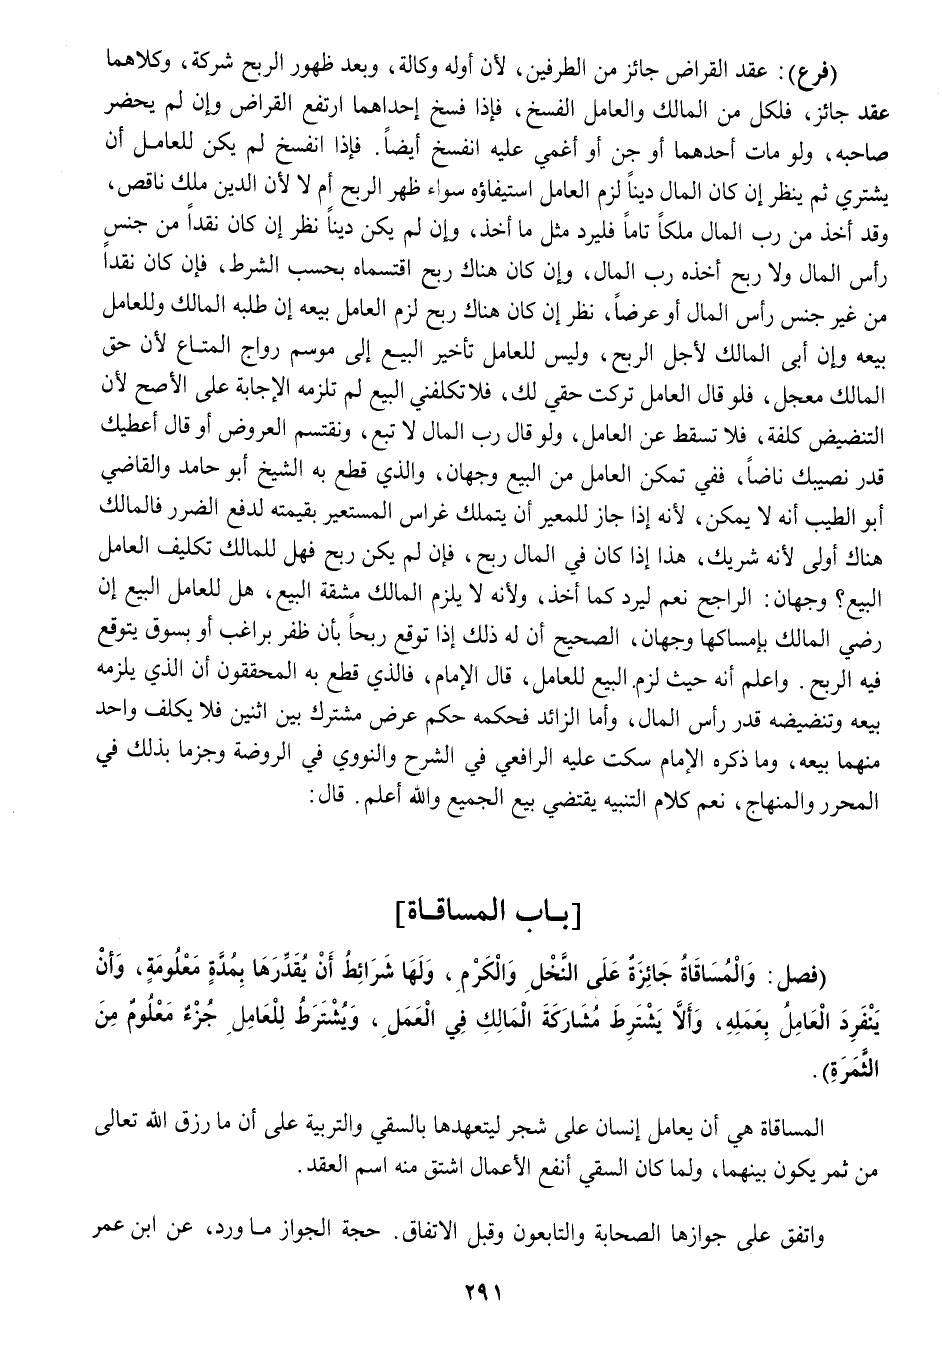 (فرع): عقد القراض جائز من الطرفين، لأن أوله وكالة، وبعد ظهور الربح شركة، وكلاهما
عقد جائز، فلكل من المالك والعامل الفسخ، فإذا فسخ إحداهما ارتفع القراض وإن لم يحضر
صاحبه، ولو مات أحدهما أو جن أو أغمي عليه انفسخ أيضاً. فإذا انفسخ لم يكن للعامل أن
يشتري ثم ينظر إن كان المال ديناً لزم العامل استيفاؤه سواء ظهر الربح أم لا لأن الدين ملك ناقص،
وقد أخذ من رب المال ملكاً تاماً فليرد مثل ما أخذ، وإن لم يكن ديناً نظر إن كان نقداً من جنس
رأس المال ولا ربح أخذه رب المال، وإن كان هناك ربح اقتسماه بحسب الشرط، فإن كان نقداً
من غير جنس رأس المال أو عرضاً، نظر إن كان هناك ربح لزم العامل بيعه إن طلبه المالك وللعامل
بيعه وإن أبى المالك لأجل الربح، وليس للعامل تأخير البيع إلى موسم رواج المتاع لأن حق
المالك معجل، فلو قال العامل تركت حقي لك، فلا تكلفني البيع لم تلزمه الإجابة على الأصح لأن
التنضيض كلفة، فلا تسقط عن العامل، ولو قال رب المال لا تبع، ونقتسم العروض أو قال أعطيك
قدر نصيبك ناضاً، ففي تمكن العامل من البيع وجهان، والذي قطع به الشيخ أبو حامد والقاضي
أبو الطيب أنه لا يمكن، لأنه إذا جاز للمعير أن يتملك غراس المستعير بقيمته لدفع الضرر فالمالك
هناك أولى لأنه شريك، هذا إذا كان في المال ربح، فإن لم يكن ربح فهل للمالك تكليف العامل
البيع؟ وجهان: الراجح نعم ليرد كما أخذ، ولأنه لا يلزم المالك مشقة البيع، هل للعامل البيع إن
رضي المالك بإمساكها وجهان، الصحيح أن له ذلك إذا توقع ربحاً بأن ظفر براغب أو بسوق يتوقع
فيه الربح. واعلم أنه حيث لزم البيع للعامل، قال الإمام، فالذي قطع به المحققون أن الذي يلزمه
بيعه وتنضيضه قدر رأس المال، وأما الزائد فحكمه حكم عرض مشترك بين اثنين فلا يكلف واحد
منهما بيعه، وما ذكره الإمام سكت عليه الرافعي في الشرح والنووي في الروضة وجزما بذلك في
المحرر والمنهاج، نعم كلام التنبيه يقتضي بيع الجميع والله أعلم. قال:
[باب المساقاة]
(فصل: وَالْمُسَاقَاةُ جَائِزَةٌ عَلَى النَّخْلِ وَالْكَرْمِ، وَلَهَا شَرَائِطُ أَنْ يُقَدِّرَهَا بِمُدَّةٍ مَعْلُومَةٍ، وَأَنْ
يَنْفَرِدَ الْعَامِلُ بِعَمَلِهِ، وَأَلَّا يَشْتَرِطَ مُشَارَكَةَ الْمَالِكِ فِي الْعَمَلِ، وَيُشْتَرَطُ لِلْعَامِلِ جُزْءٌ مَعْلُومٌ مِنَ
الثَّمَرَةِ).
المساقاة هي أن يعامل إنسان على شجر ليتعهدها بالسقي والتربية على أن ما رزق الله تعالى
من ثمر يكون بينهما، ولما كان السقي أنفع الأعمال اشتق منه اسم العقد.
واتفق على جوازها الصحابة والتابعون وقبل الاتفاق. حجة الجواز ما ورد، عن ابن عمر
٢٩١